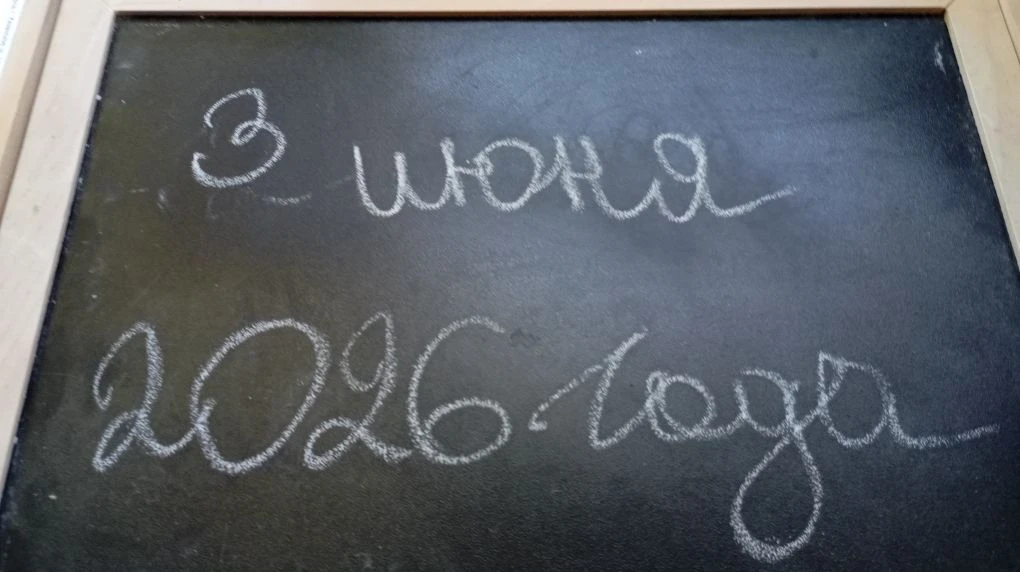 3 июня
2026 года